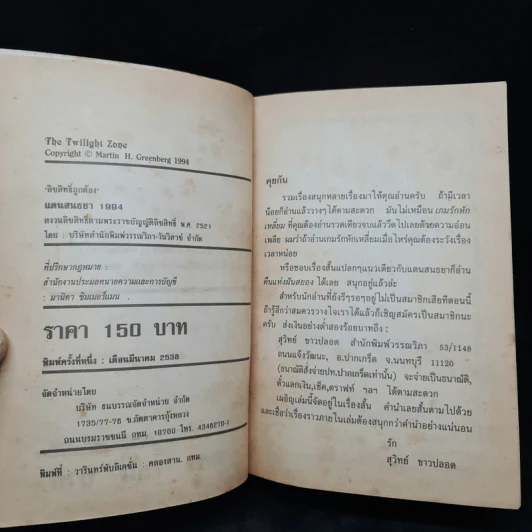 The Twilight Zone
Copyright © Martin H. Greenberg 1994
'ลิขสิทธิ์ถูกต้อง'
แดนสนธยา 1994
สงวนลิขสิทธิ์ตามพระราชบัญญัติลิขสิทธิ์ พ.ศ. 2521
โดย : บริษัทสำนักพิมพ์วรรณวิภา-วันวิสาข์ จำกัด
ที่ปรึกษากฎหมาย :
สำนักงานประมลทนายความและการบัญชี
: มานิคา ซิมเมอร์แมน
ราคา 150 บาท
พิมพ์ครั้งที่หนึ่ง : เดือนมีนาคม 2538
จัดจำหน่ายโดย
บริษัท ธนบรรณจัดจำหน่าย จำกัด
1735/77-78 ข.ภัตตาคารกุ้งหลวง
ถนนบรมราชชนนี กทม. 10700 โทร. 4345270-1
พิมพ์ที่ : วารินทร์พับลิเคชั่น : คลองสาน. กทม.
คุยกัน
รวมเรื่องสนุกหลายเรื่องมาให้คุณอ่านครับ ถ้ามีเวลา
น้อยก็อ่านแล้ววางๆ ได้ตามสะดวก มันไม่เหมือน เกมรักหัก
เหลี่ยม ที่คุณต้องอ่านรวดเดียวจบแล้ววี้ดไปเลยด้วยความอ่อน
เพลีย ผมว่าถ้าอ่านเกมรักหักเหลี่ยมเมื่อไหร่คุณต้องระวังเรื่อง
เวลาหน่อย
หรือชอบเรื่องสั้นแปลกๆแนวเดียวกับแดนสนธยาก็อ่าน
คืนแห่งฝันสยอง ได้เลย สนุกอยู่แล้วล่ะ
สำหรับนักอ่านที่ยังรีๆรอๆอยู่ไม่เป็นสมาชิกเสียทีตอนนี้
ถ้ารู้สึกว่าสมควรวางใจเราได้แล้วก็เชิญสมัครเป็นสมาชิกนะ
ครับ ส่งเงินอย่างต่ำสองร้อยบาทถึง :
สุวิทย์ ขาวปลอด สำนักพิมพ์วรรณวิภา 53/1148
ถนนแจ้งวัฒนะ, อ.ปากเกร็ด จ.นนทบุรี 11120
(ธนาณัติสั่งจ่ายปท.ปากเกร็ดเท่านั้น) จะจ่ายเป็นธนาณัติ,
ตั๋วแลกเงิน,เช็ค,ดราฟท์ ฯลฯ ได้ตามสะดวก
เผอิญเล่มนี้จัดอยู่ในเรื่องสั้น คำนำเลยสั้นตามไปด้วย
และเชื่อว่าเรื่องราวภายในเล่มต้องสนุกกว่าคำนำอย่างแน่นอน
รัก
สุวิทย์ ขาวปลอด